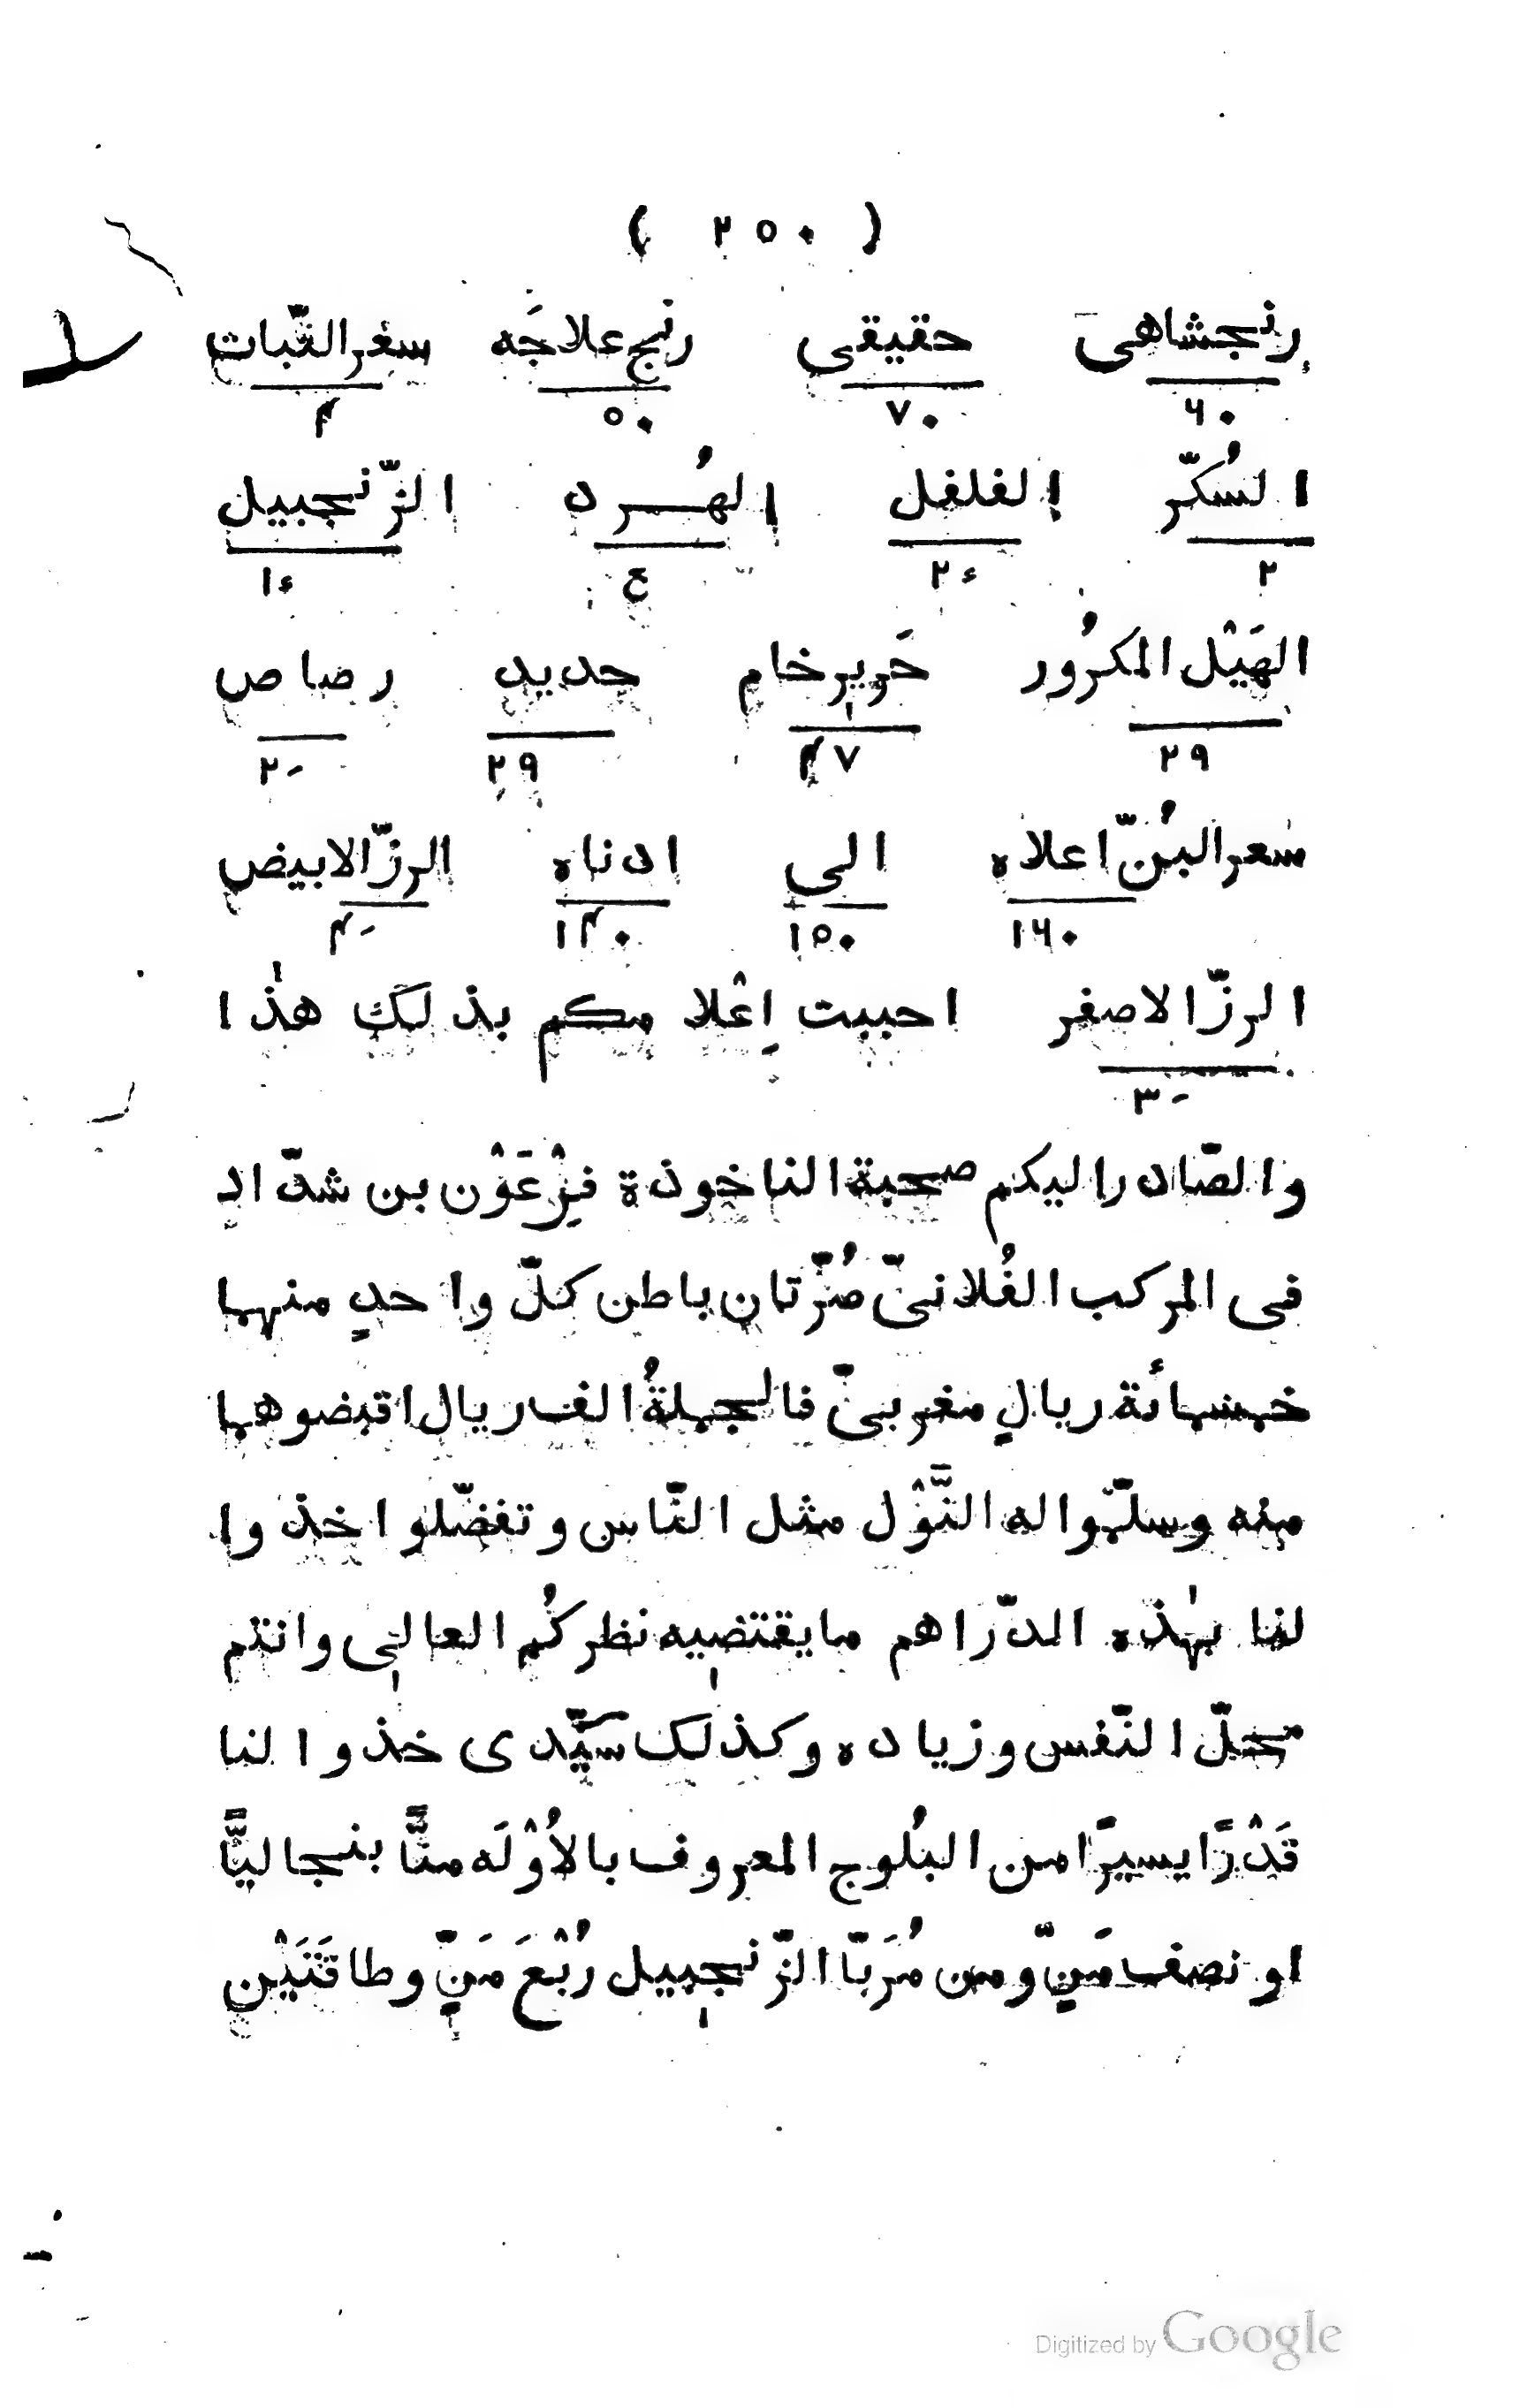 ( ٢٥٠ )
رنجشاهى حقيقى رنج علاجَه سعر النّبات
٦٠ ٧٠ ٥٠ ۴
السُكّر الفلفل الهُرد الزّنجبيل
٢ ٢ء ع ١ء
الهَيْل المكرُور حَرير خام حديد رصاص
٢٩ ۴٧ ٢٩ ٢-
سعر البُنّ اعلاه الى ادناه الرزّ الابيض
١٦٠ ١٥٠ ١۴٠ ۴-
الرزّ الاصفر احببت اِعْلامكم بذلك هذٰا
٣-
والصّادر اليكم صحبة الناخوذة فِرْعَوْن بن شدّاد
فى المركب الفُلانىّ صُرّتان باطن كلّ واحدٍ منهما
خمسمائة ريالٍ مغربىّ فالجملةُ الف ريال اقبضوهما
منه وسلّموا له النَّوْل مثل النّاس وتفضّلوا خذوا
لنا بهٰذه الدّراهم ما يقتضيه نظركُم العالِى وانتم
محلّ النّفس وزياده وكذلك سيّدى خذوا لنا
قَدْرًا يسيرًا من البُلوج المعروف بالأُوْلَه منًّا بنجاليًّا
او نصف مَنٍّ ومن مُرَبّا الزّنجبِيل رُبْعَ مَنٍّ وطاقَتَيْن
Digitized by Google